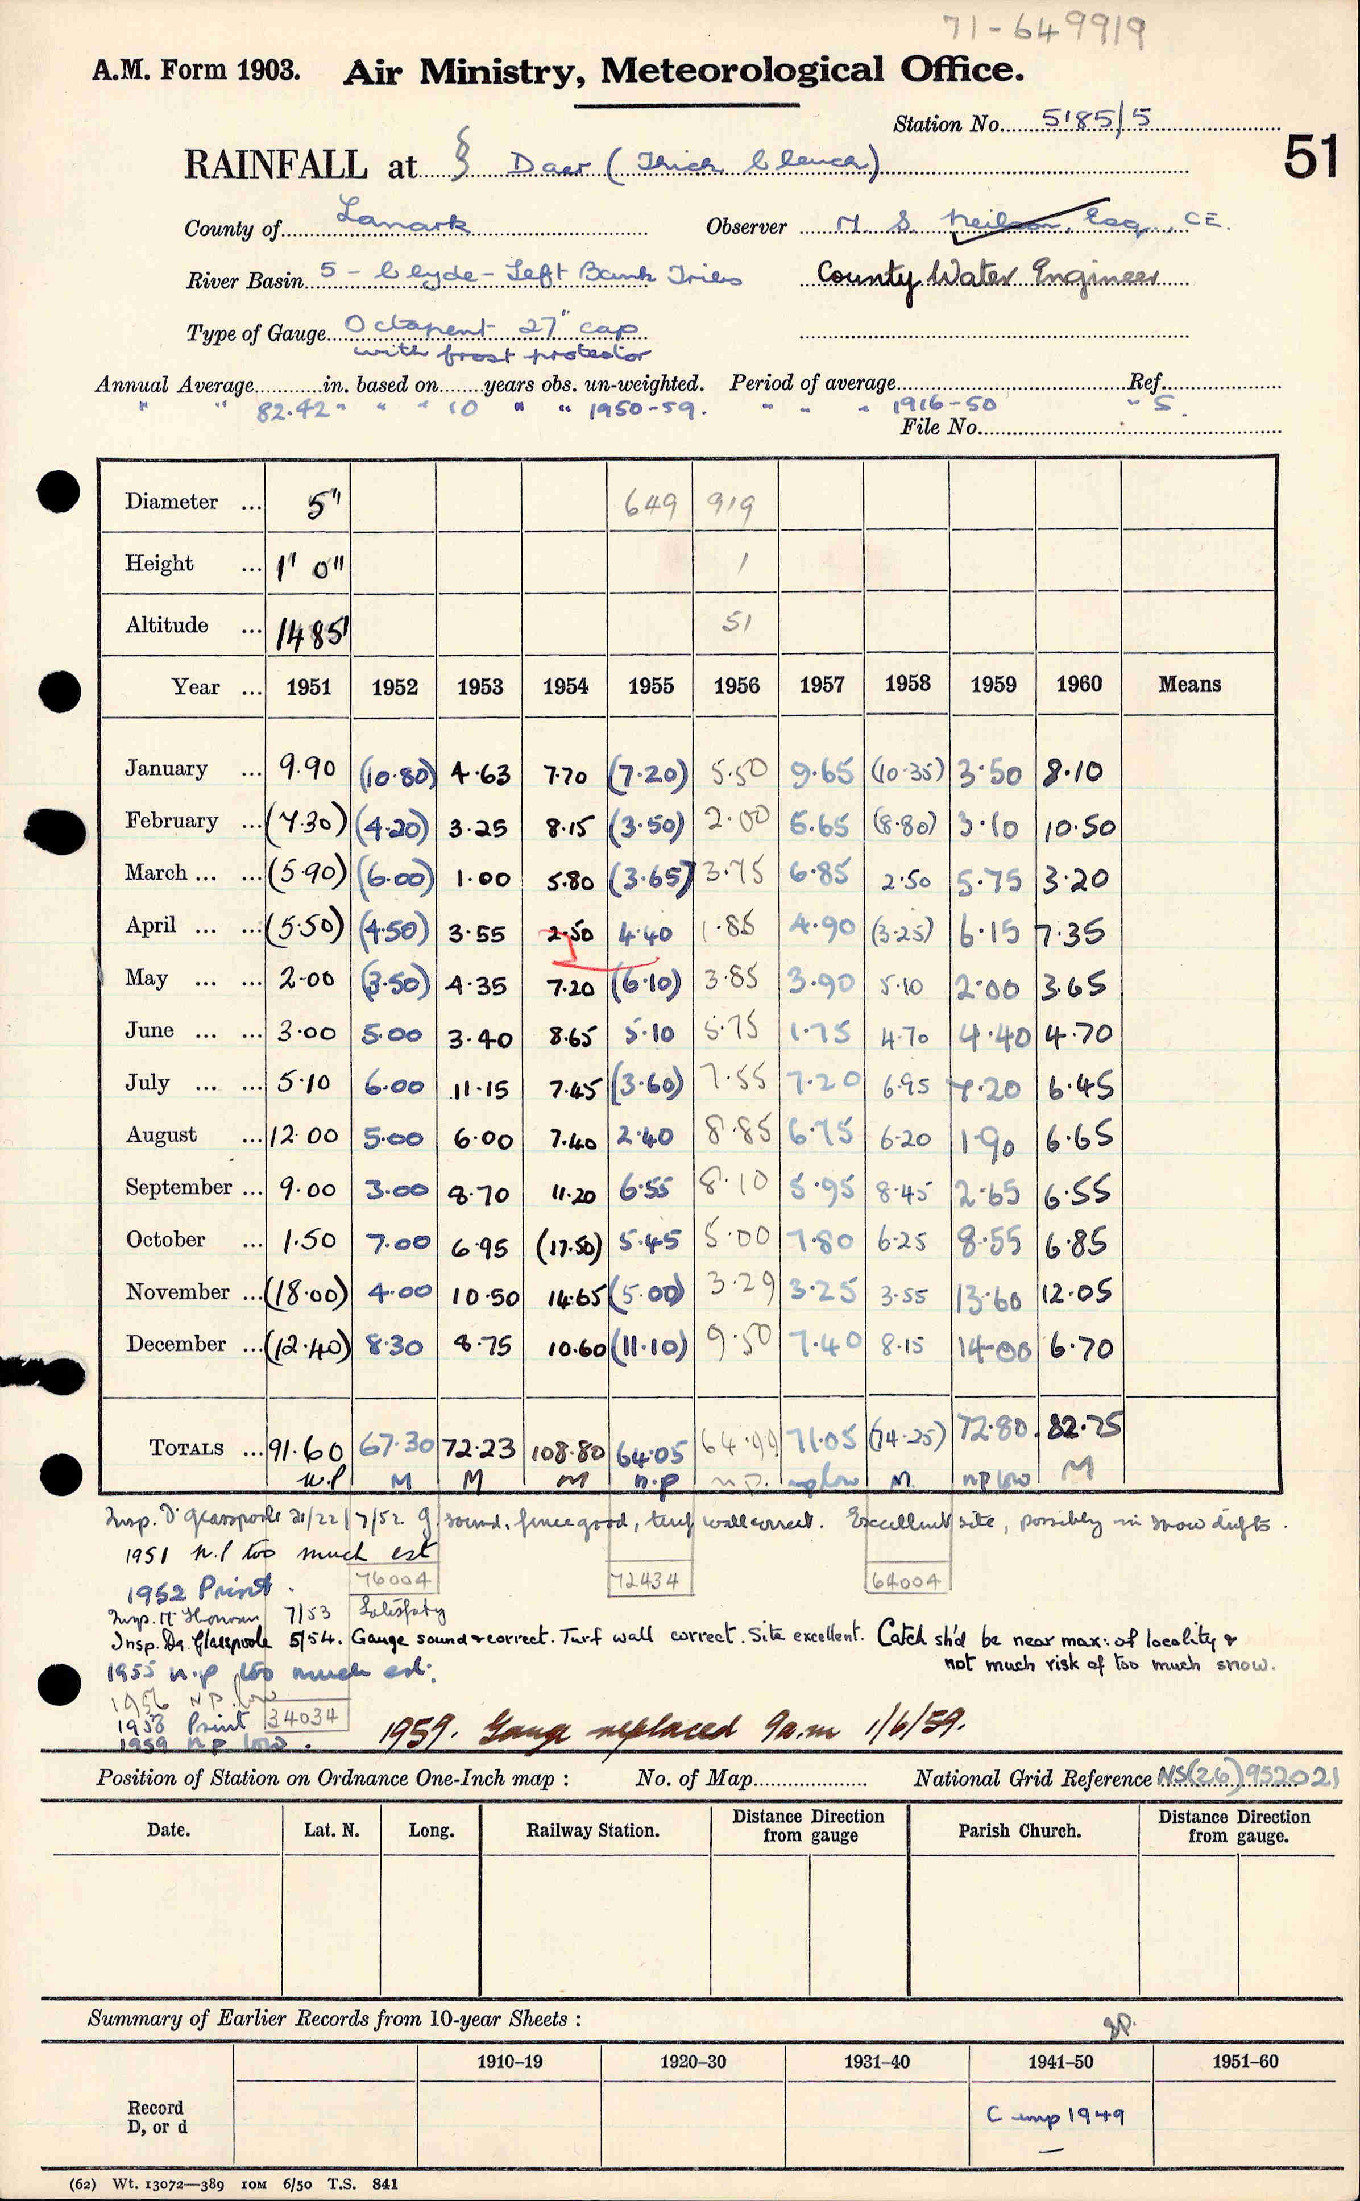 71-649919
A.M. Form 1903. Air Ministry, Meteorological Office.
Station No. 5185/5
51
RAINFALL at § Daer (Thick Cleuch)
County of Lanark Observer M. S. Neilson, Esq., C.E.
River Basin 5 - Clyde - Left Bank Tribs County Water Engineer
Type of Gauge Octapent 27" cap
with frost protector
Annual Average in. based on years obs. un-weighted. Period of average Ref.
" " 82.42" " " 10 " " 1950-59. " " " 1916-50 " S.
File No.
Diameter ... 5" 649 919
Height ... 1' 0" 1
Altitude ... 1485' 51
Year ... 1951 1952 1953 1954 1955 1956 1957 1958 1959 1960 Means
January ... 9.90 (10.80) 4.63 7.70 (7.20) 5.50 9.65 (10.35) 3.50 8.10
February ... (7.30) (4.20) 3.25 8.15 (3.50) 2.00 6.65 (8.80) 3.10 10.50
March ... ... (5.90) (6.00) 1.00 5.80 (3.65) 3.75 6.85 2.50 5.75 3.20
April ... ... (5.50) (4.50) 3.55 2.50 4.40 1.85 4.90 (3.25) 6.15 7.35
May ... ... 2.00 (3.50) 4.35 7.20 (6.10) 3.85 3.90 5.10 2.00 3.65
June ... ... 3.00 5.00 3.40 8.65 5.10 5.75 1.75 4.70 4.40 4.70
July ... ... 5.10 6.00 11.15 7.45 (3.60) 7.55 7.20 6.95 7.20 6.45
August ... 12.00 5.00 6.00 7.40 2.40 8.85 6.75 6.20 1.90 6.65
September ... 9.00 3.00 8.70 11.20 6.55 8.10 5.95 8.45 2.65 6.55
October ... 1.50 7.00 6.95 (17.50) 5.45 5.00 7.80 6.25 8.55 6.85
November ... (18.00) 4.00 10.50 14.65 (5.00) 3.29 3.25 3.55 13.60 12.05
December ... (12.40) 8.30 8.75 10.60 (11.10) 9.50 7.40 8.15 14.00 6.70
TOTALS ... 91.60 67.30 72.23 108.80 64.05 64.99 71.05 (74.25) 72.80 82.75
n.p M M M n.p n.p. np low M. n.p low M
Insp. Dr Glasspoole 21/22/7/52. G. sound, fence good, turf wall correct. Excellent site, possibly in snow drifts.
1951 n.p too much est
76004 72434 64004
1952 Print.
Insp. 7/53 Satisfacty
Insp. Dr. Glasspoole 5/54. Gauge sound & correct. Turf wall correct. Site excellent. Catch sh'd be near max: of locality &
not much risk of too much snow.
1955 n.p too much est.
1956 N.P. low
1958 Print 34034
1959 n.p low.
1959. Gauge replaced 9a.m 1/6/59.
Position of Station on Ordnance One-Inch map : No. of Map National Grid Reference NS(26)952021
Date. Lat. N. Long. Railway Station. Distance Direction from gauge Parish Church. Distance Direction from gauge.
Summary of Earlier Records from 10-year Sheets :
1910–19 1920–30 1931–40 1941–50 1951–60
Record
D, or d
C 1949
(62) Wt. 13072—389 10M 6/50 T.S. 841